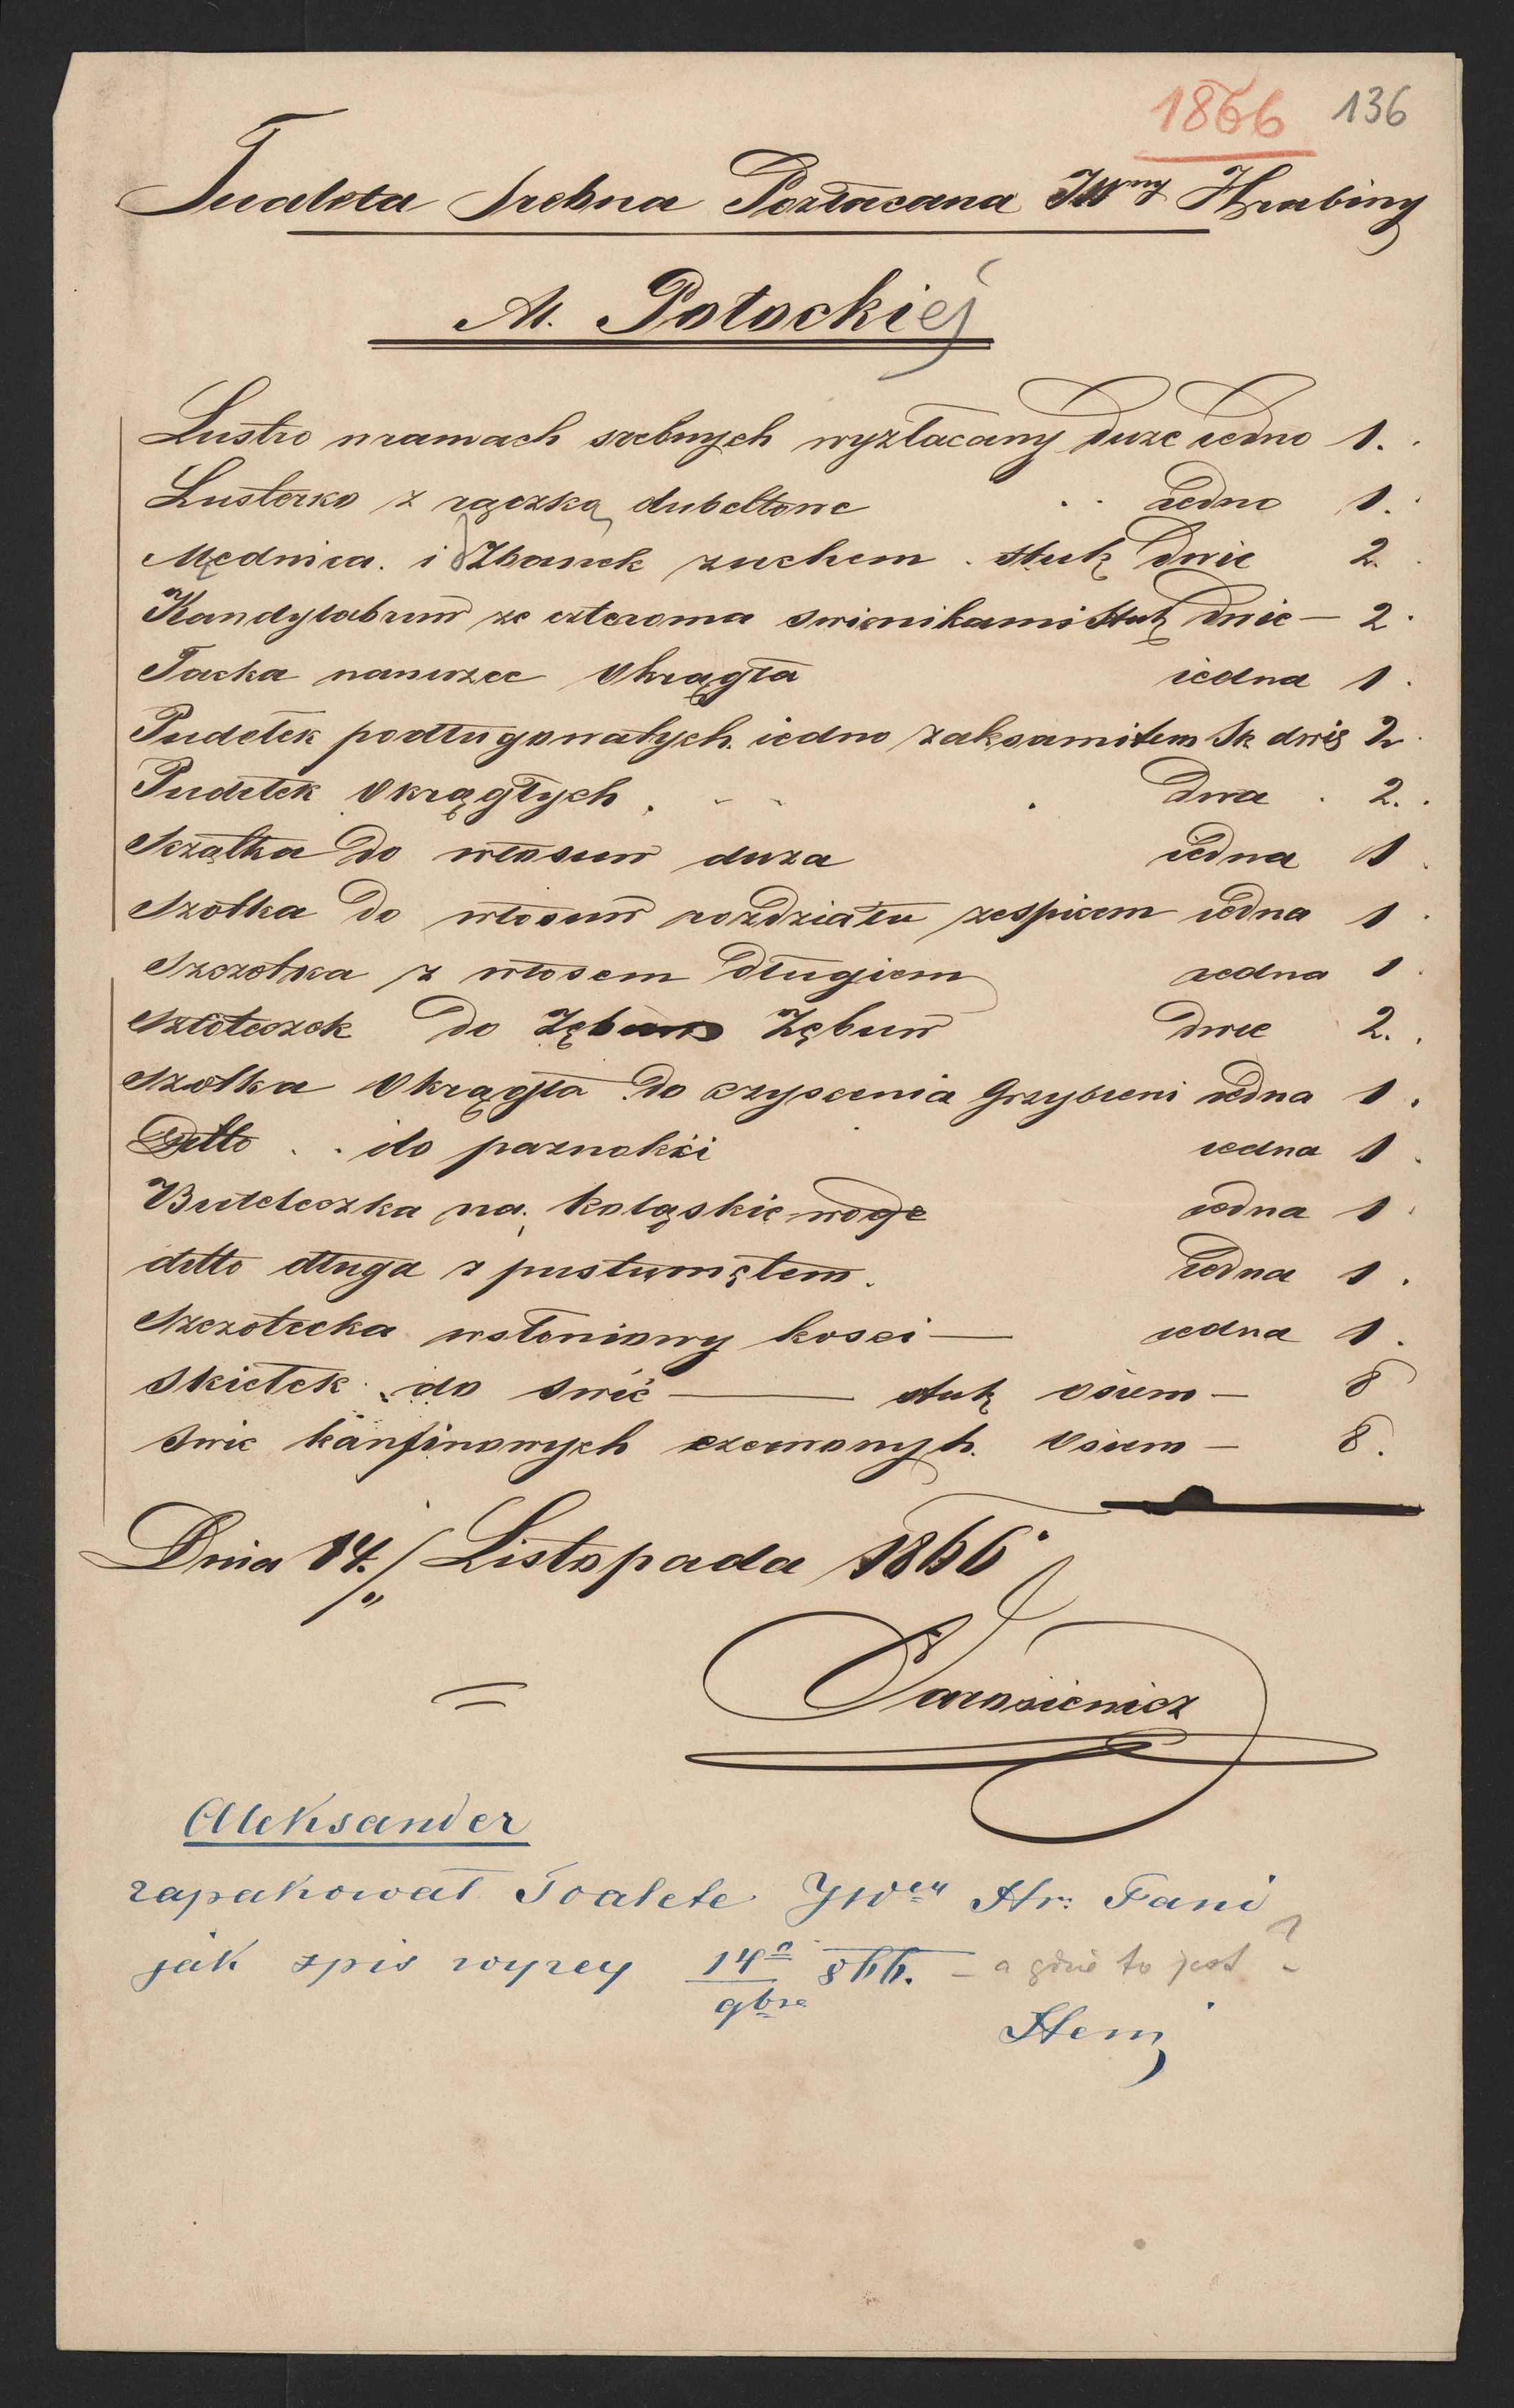 1866 136
Tualeta Srebna Pozłacana JWny Hrabiny
A. Potockiej
Lustro wramach srebnych wyzłacany Duże iedno 1.
Lusterko z rączką dubeltowe iedno 1.
Mędnica i Zbanek zuchem stuk Dwie 2.
Kandylabruw ze czteroma swicnikami stuk Dwie — 2.
Tacka nanurzee Okrągła iedna 1.
Pudełek podługowatych iedno zaksamitem Sk dwie 2.
Pudełek Okrągłych Dwa 2.
Szzątka Do włosuw duza iedna 1
Szotka Do włosuw rozdziału zespicem iedna 1.
Szczotka z włosem Długiem iedna 1.
Szloteczek Do Zębuw Dwie 2.
Szotka Okrągła Do czyscenia Grzybieni iedna 1.
Ditto do paznokci iedna 1.
Buteleczka na koląskie wodę iedna 1.
ditto długa z pustumętem. iedna 1.
Szczotecka wsłoniowy kosci — iedna 1.
Skiełek do swić — stuk osiem — 8
Swic kanfinowych czerwonych. Osiem — 8.
Dnia 14./ Listopada 1866
Jarosiewicz
Aleksander
zapakował Toalete JWej Hr: Fani
jak spis wyzey 14o 866. — a gdzie to jest ?
9bra